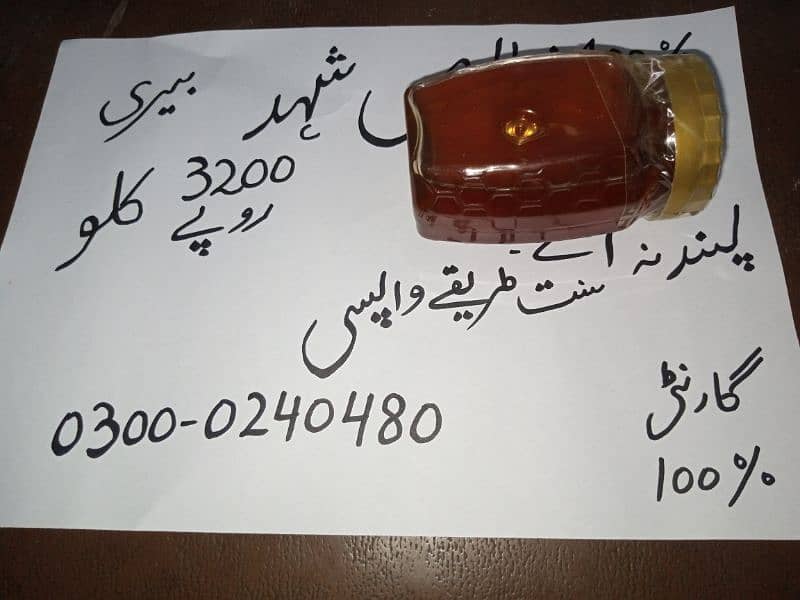 100% شہد بیری
3200 روپے کلو
پسند نہ آئے
سنت طریقے واپسی
گارنٹی
100%
0300-0240480